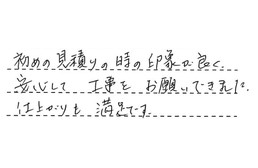 初めの見積りの時の印象が良く、
安心して 工事を お願いできました。
仕上がりも 満足です。